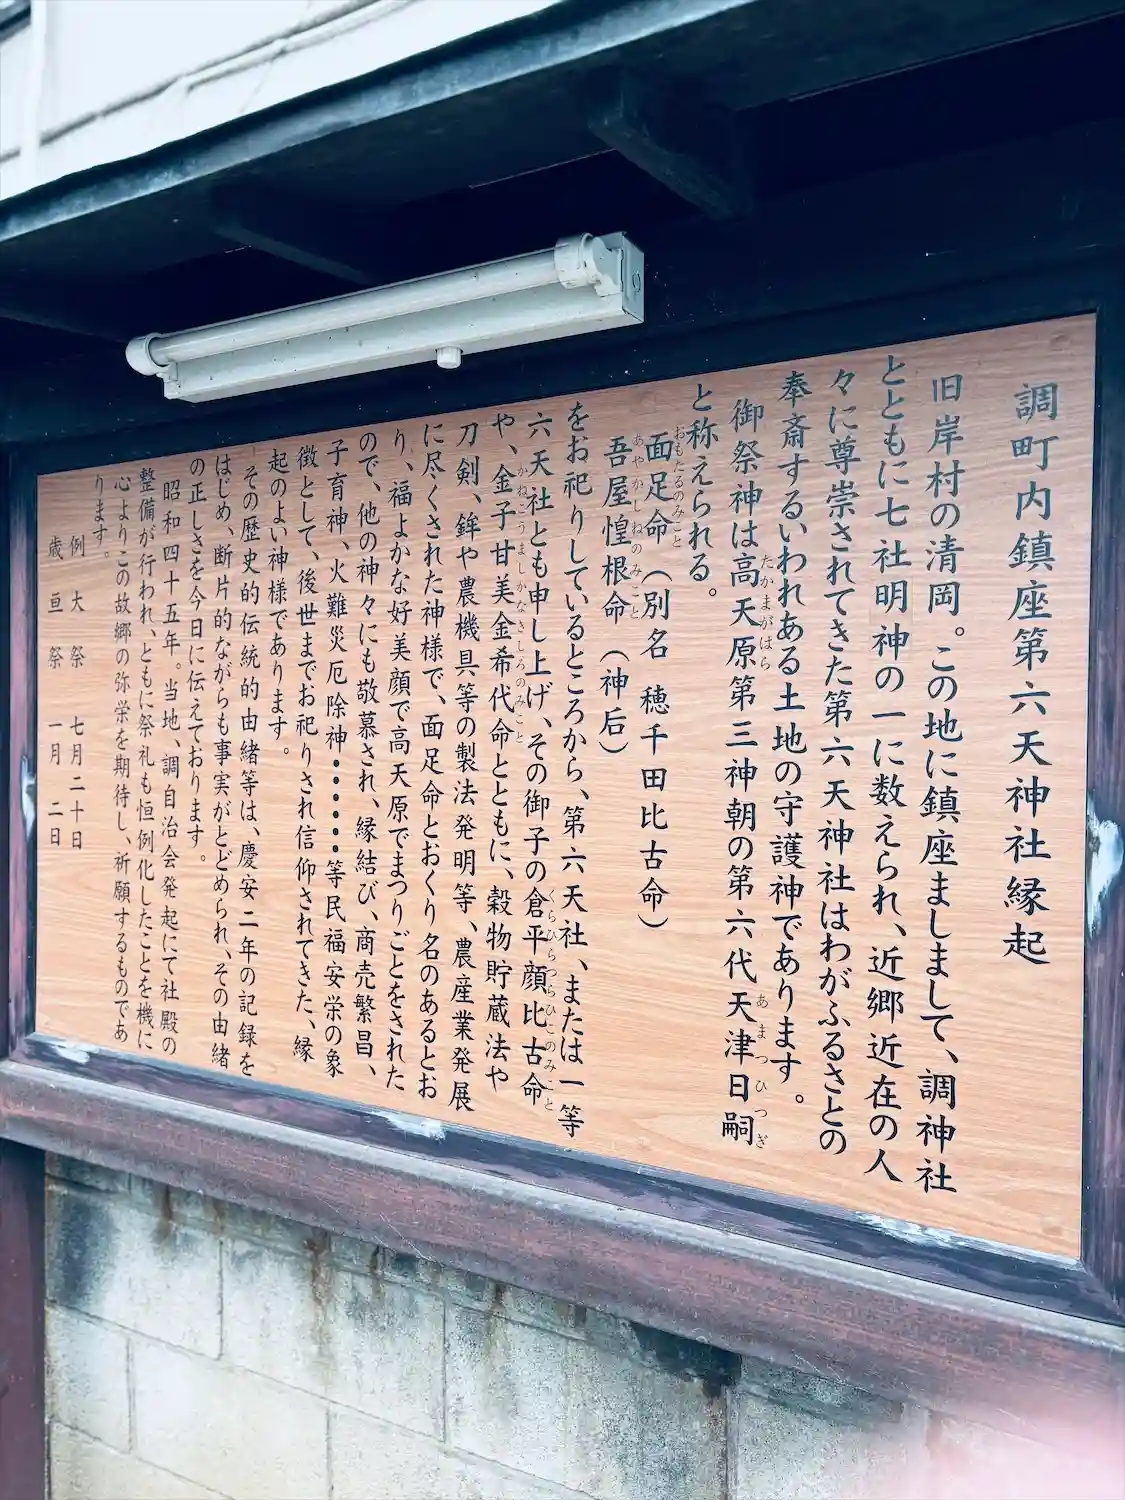 調町内鎮座第六天神社縁起
旧岸村の清岡。この地に鎮座ましまして、調神社
とともに七社明神の一に数えられ、近郷近在の人
々に尊崇されてきた第六天神社はわがふるさとの
奉斎するいわれある土地の守護神であります。
御祭神は高天原第三神朝の第六代天津日嗣
たかまがはら
あまつひつぎ
と称えられる。
面足命（別名 穂千田比古命）
おもたるのみこと
吾屋惶根命（神后）
あやかしねのみこと
をお祀りしているところから、第六天社、または一等
六天社とも申し上げ、その御子の倉平顔比古命
くらひらつらひこのみこと
や、金子甘美金希代命とともに、穀物貯蔵法や
かねこうましかなきしろのみこと
刀剣、鉾や農機具等の製法発明等、農産業発展
に尽くされた神様で、面足命とおくり名のあるとお
り、福よかな好美顔で高天原でまつりごとをされた
ので、他の神々にも敬慕され、縁結び、商売繁昌、
子育神、火難災厄除神・・・・・・等民福安栄の象
徴として、後世までお祀りされ信仰されてきた、縁
起のよい神様であります。
その歴史的伝統的由緒等は、慶安二年の記録を
はじめ、断片的ながらも事実がとどめられ、その由緒
の正しさを今日に伝えております。
昭和四十五年。当地、調自治会発起にて社殿の
整備が行われ、ともに祭礼も恒例化したことを機に
心よりこの故郷の弥栄を期待し、祈願するものであ
ります。
例大祭 七月二十日
歳亘祭 一月二日